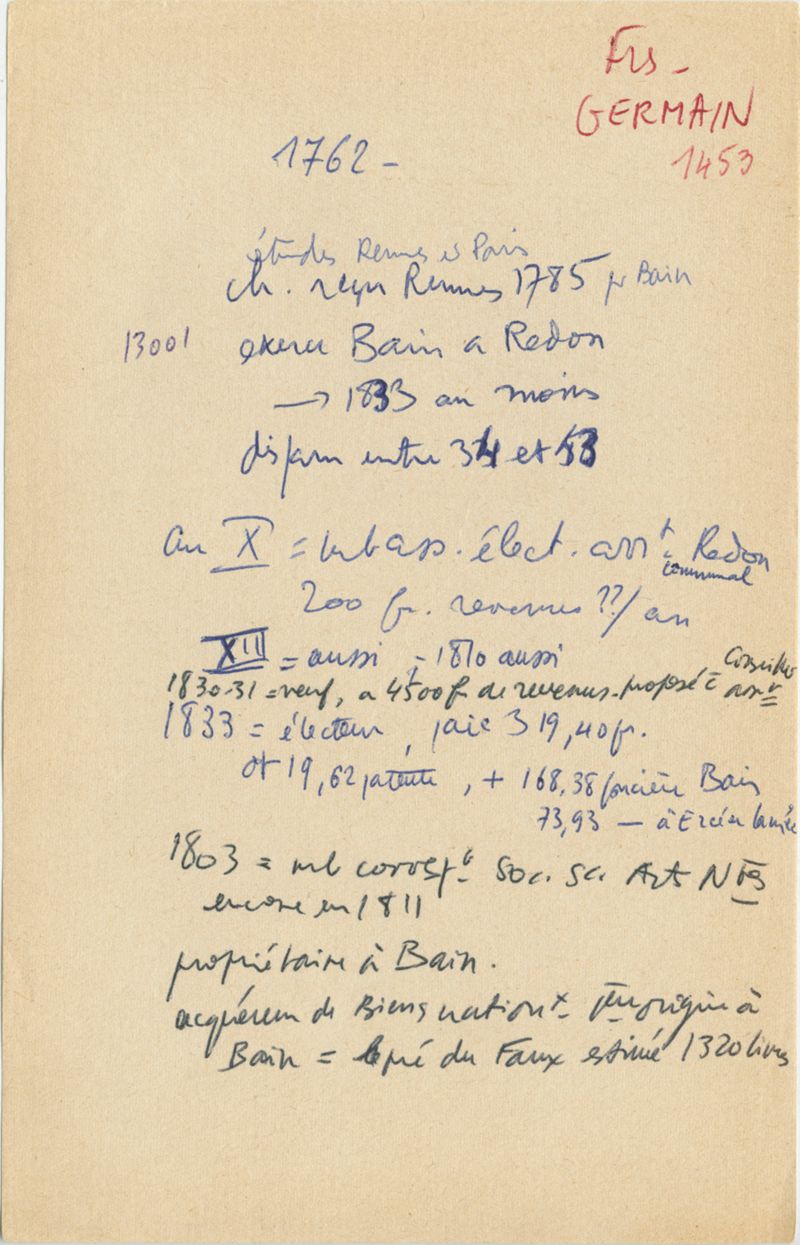 Frs -
GERMAIN
1453
1762 -
études Rennes et Paris
ch. reçu Rennes 1785 pr Bain
13001 exerce Bain a Redon
→ 1833 au moins
disparu entre 34 et 53
An X = mb ass. élect. arrt Redon
communal
200 fr. revenus ??/an
XII = aussi - 1810 aussi
Conseiller
1830-31 = veuf, a 4500 fr de revenus. proposé = arrt
1833 = électeur, paie 319,40 fr.
dt 19,62 patente, + 168,38 foncière Bain
73,93 — à Ercé en Lamée
1803 = mb correspt Soc. Sc. Arts Ntes
encore en 1811
propriétaire à Bain.
acquéreur de Biens nationx 1ère origine à
Bain = le pré du Faux estimé 1320 livres